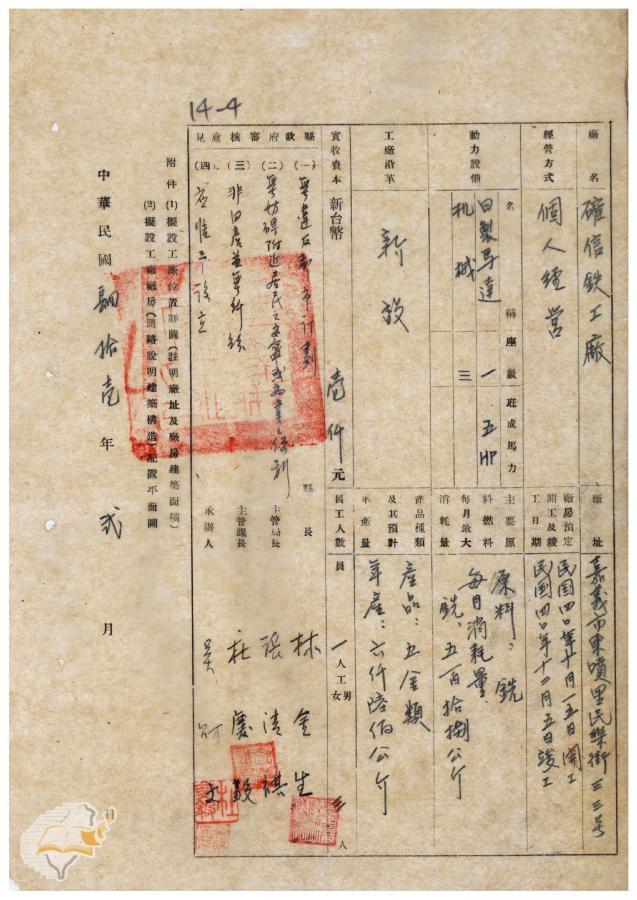 14-4
廠名 確信鉄工廠
廠址 嘉義市東噴里民樂街三三号
經營方式 個人經営
廠房預定開工及竣工日期
民国四0年十月一五日開工
民国四0年十二月五日竣工
動力設備
名稱 座數 班或馬力
日製馬達 一 五HP
机械 三
主要原料燃料每月最大消耗量
原料：銑
每月消耗量
銑，五百拾捌公斤
工廠沿革 新設
產品種類及其預計年產量
產品：五金類
年產：六仟陸佰公斤
實收資本 新台幣 壹仟元
員工人數 員一人 工男三人 女
縣政府審核意見
(一) 無違反都市計劃
(二) 無妨碍附近居民之安寧或為業之便利
(三) 非旧居並無糾紛
(四) 應准予設立
縣長 林金生
主管局長 張清棋
主管課長 莊慶毅
承辦人 吳
附件(1)擬設工廠位置詳圖(註明廠址及廠房建築面積)
(2)擬設工廠廠房(簡略說明建築構造)配置平面圖
中華民國四拾壱年弍月日